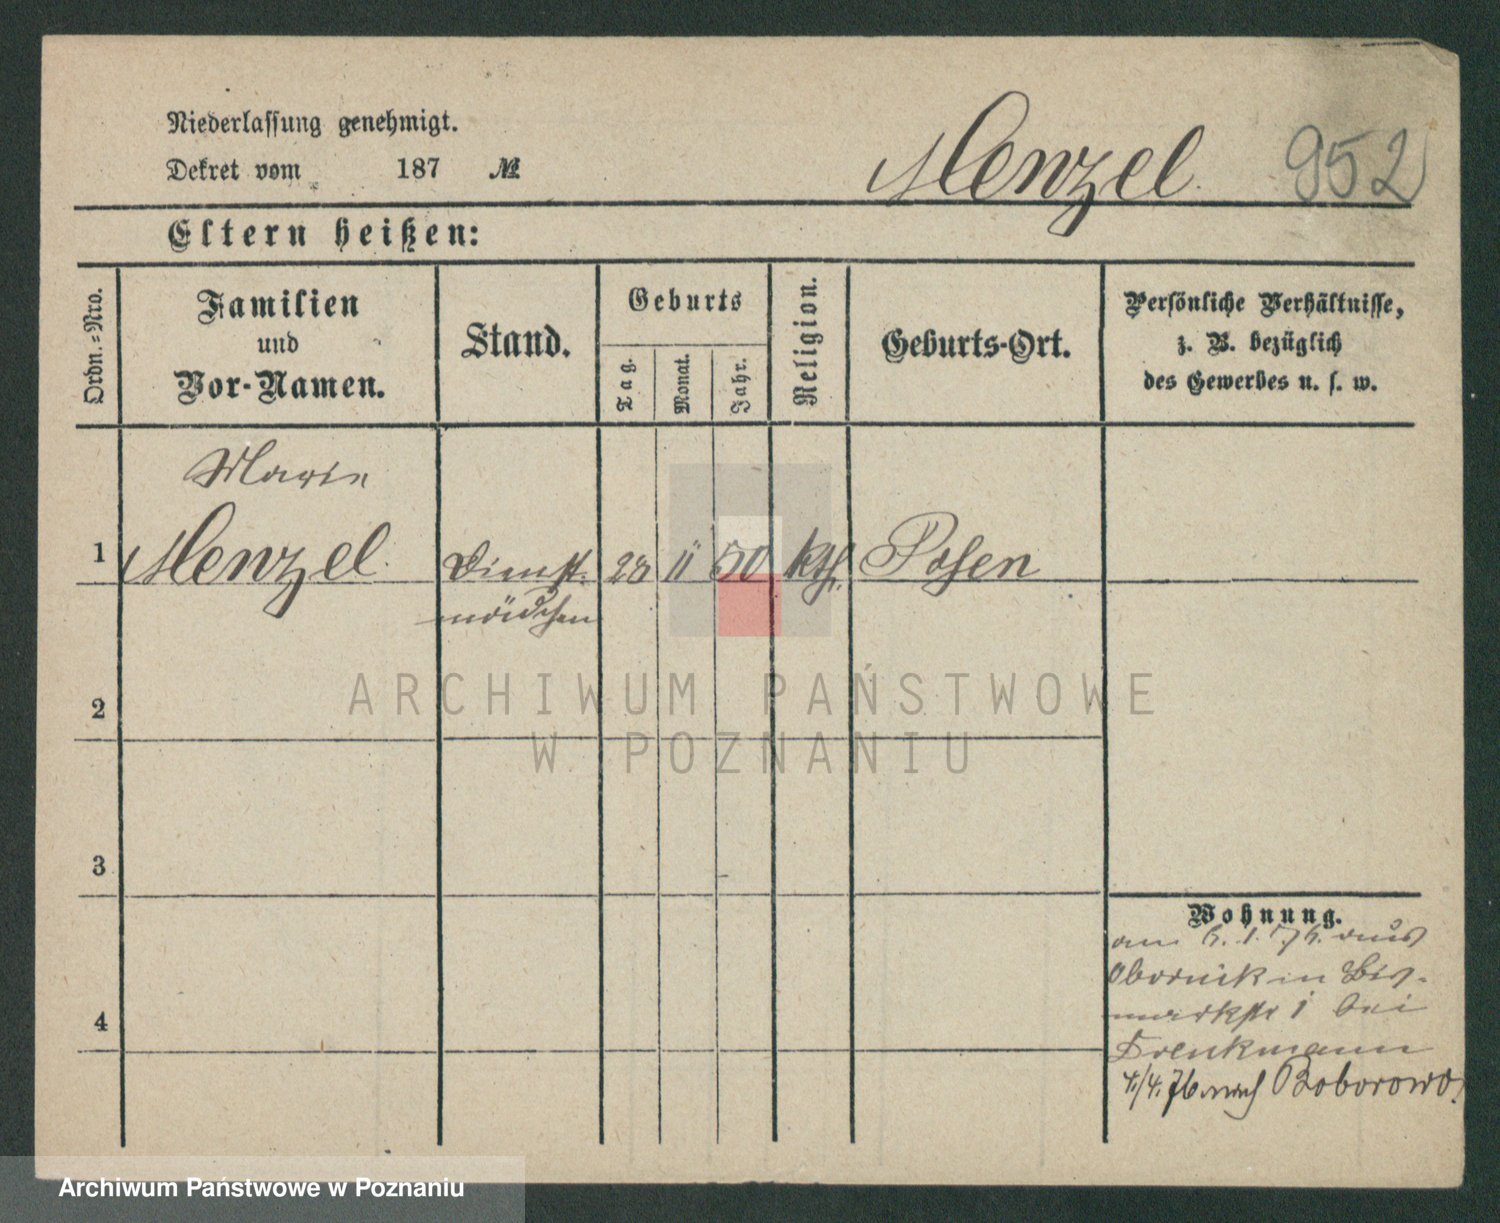 Niederlassung genehmigt.
Dekret vom 187 №
Menzel 952
Eltern heißen:
Ordn.=Nro.
Familien
und
Vor-Namen.
Stand.
Geburts
Tag.
Monat.
Jahr.
Religion.
Geburts-Ort.
Persönliche Verhältnisse,
z. B. bezüglich
des Gewerbes u. s. w.
Marie
1 Menzel Dienst- 28 11 50 kth. Posen
mädchen
2
3
4
Wohnung.
am 6. 1. 76. aus
Obornik in Bis-
markstr 1 bei
Drenkmann
4/4. 76 nach Boborowo.
ARCHIWUM PAŃSTWOWE
W POZNANIU
Archiwum Państwowe w Poznaniu